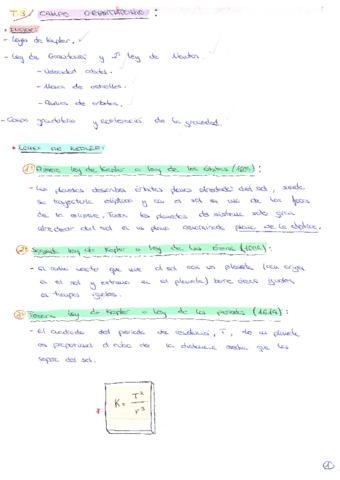 T-3 CAMPO GRAVITATORIO :
- Leyes de Kepler.
- Ley de Gravitación y 2ª Ley de Newton
- Velocidad orbital.
- Masas de estrellas.
- Radios de órbitas.
- Campo gravitatorio y aceleración de la gravedad.
• LEYES DE KEPLER:
Primera ley de Kepler o ley de las órbitas (1609):
- Los planetas describen órbitas planas alrededor del sol, siendo
su trayectoria elíptica y con el sol en uno de los focos
de la elipse. Todos los planetas del sistema solar giran
alrededor del sol en un plano denominado plano de la eclíptica.
Segunda ley de Kepler o ley de las áreas (1609):
- El radio vector que une el sol con un planeta (con origen
en el sol y extremo en el planeta) barre áreas iguales
en tiempos iguales.
Tercera ley de Kepler o ley de los periodos (1619):
- El cuadrado del periodo de revolución, T, de un planeta
es proporcional al cubo de la distancia media que les
separa del sol.
K = T² / r³
1